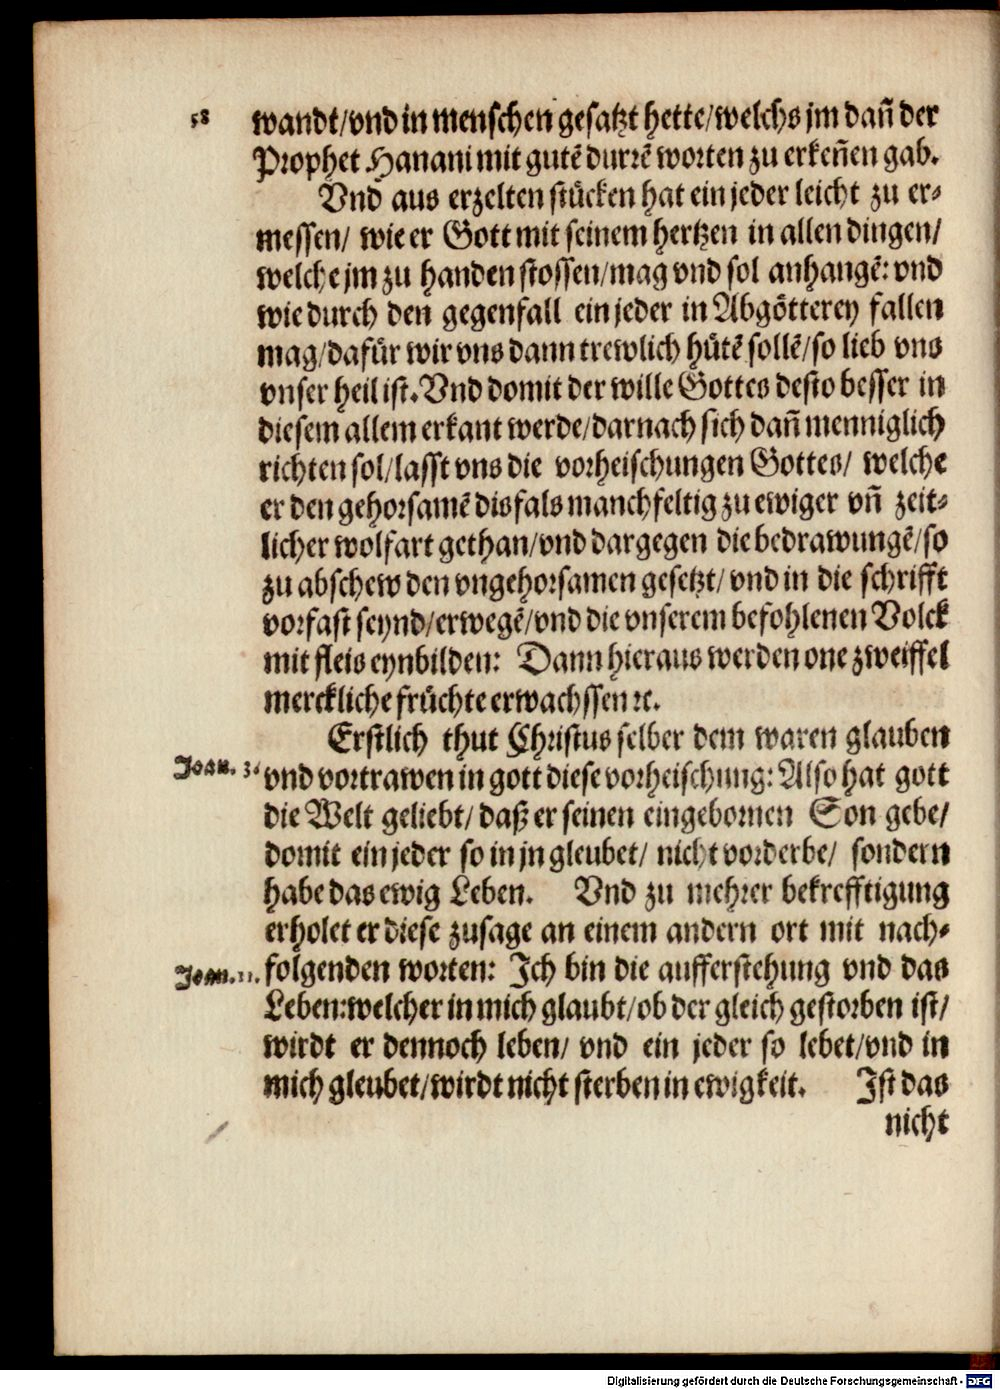 58
wandt/vnd in menschen gesatzt hette/welchs jm dañ der
Prophet Hanani mit gutē durrē worten zu erkeñen gab.
Vnd aus erzelten stücken hat ein jeder leicht zu er-
messen/ wie er Gott mit seinem hertzen in allen dingen/
welche jm zu handen stossen/mag vnd sol anhangē: vnd
wie durch den gegenfall ein jeder in Abgötterey fallen
mag/dafür wir vns dann trewlich hütē sollē/so lieb vns
vnser heil ist. Vnd domit der wille Gottes desto besser in
diesem allem erkant werde/darnach sich dañ menniglich
richten sol/lasst vns die vorheischungen Gottes/ welche
er den gehorsamē disfals manchfeltig zu ewiger vñ zeit-
licher wolfart gethan/vnd dargegen die bedrawungē/so
zu abschew den vngehorsamen gesetzt/ vnd in die schrifft
vorfast seynd/erwegē/vnd die vnserem befohlenen Volck
mit fleis eynbilden: Dann hieraus werden one zweiffel
merckliche früchte erwachssen ꝛc.
Erstlich thut Christus selber dem waren glauben
Joan. 3.
vnd vortrawen in gott diese vorheischung: Also hat gott
die Welt geliebt/ daß er seinen eingebornen Son gebe/
domit ein jeder so in jn gleubet/ nicht vorderbe/ sondern
habe das ewig Leben. Vnd zu mehrer bekrefftigung
erholet er diese zusage an einem andern ort mit nach-
Joan. 11.
folgenden worten: Ich bin die aufferstehung vnd das
Leben:welcher in mich glaubt/ob der gleich gestorben ist/
wirdt er dennoch leben/ vnd ein jeder so lebet/vnd in
mich gleubet/wirdt nicht sterben in ewigkeit. Ist das
nicht
Digitalisierung gefördert durch die Deutsche Forschungsgemeinschaft - DFG